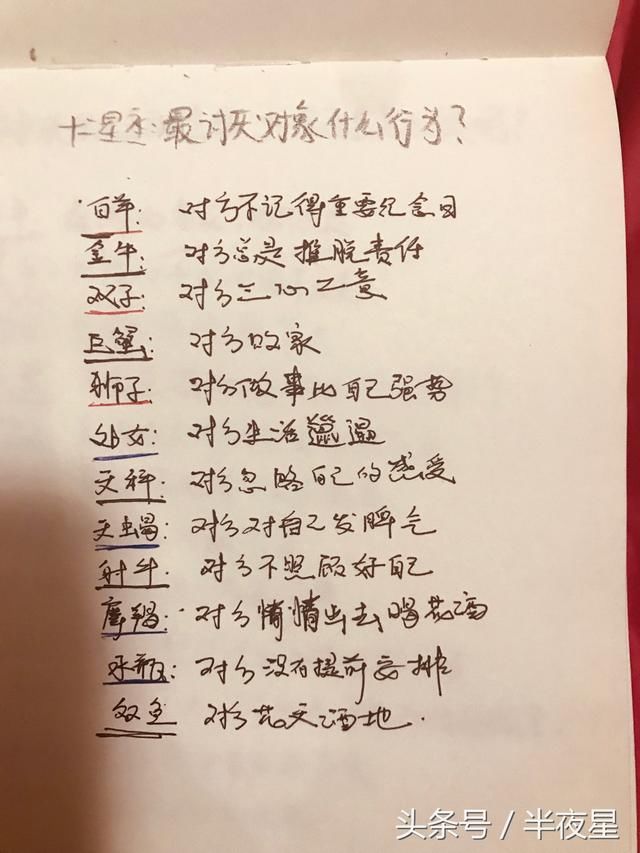 十二星座最讨厌对象什么行为?
白羊: 对方不记得重要纪念日
金牛: 对方总是推脱责任
双子: 对方三心二意
巨蟹: 对方败家
狮子: 对方做事比自己强势
处女: 对方生活邋遢
天秤: 对方忽略自己的感受
天蝎: 对方对自己发脾气
射牛: 对方不照顾好自己
摩羯: 对方悄悄出去喝花酒
水瓶: 对方没有提前安排
双鱼 对方花天酒地.
头条号 / 半夜星